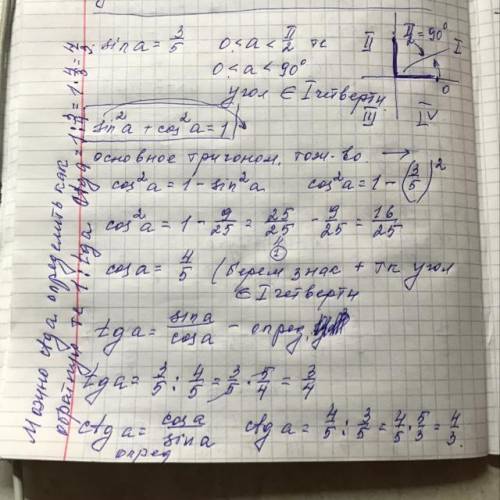 sin a = 3/5   0 < a < π/2 те
0 < a < 90°
угол ∈ I четверти
II   π/2 = 90°   I
0
III   IV
sin²a + cos²a = 1
основное тригоном. тож-во. →
cos²a = 1 - sin²a   cos²a = 1 - (3/5)²
cos²a = 1 - 9/25 = 25/25 - 9/25 = 16/25
cos a = 4/5 (берем знак + тк угол
∈ I четверти
tg a = sin a/cos a - опред.
tg a = 3/5 : 4/5 = 3/5 · 5/4 = 3/4
ctg a = cos a/sin a   ctg a = 4/5 : 3/5 = 4/5 · 5/3 = 4/3.
опред
Можно ctg a определить как
обратную те 1 : tg a ctg a = 1 : 3/4 = 1 · 4/3 = 4/3